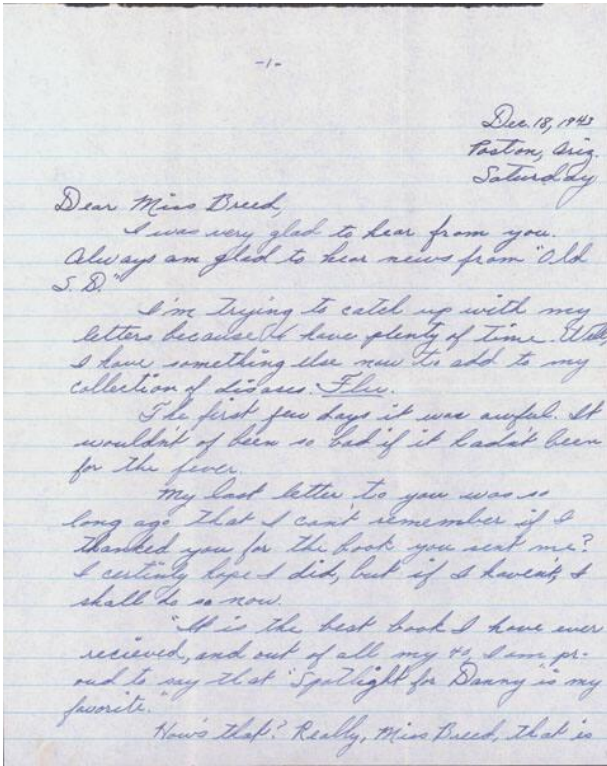 -1-
Dec. 18, 1943
Poston, Ariz.
Saturday
Dear Miss Breed,
I was very glad to hear from you.
Always am glad to hear news from "Old
S. D."
I'm trying to catch up with my
letters because I have plenty of time. Well
I have something else now to add to my
collection of diseases. Flu.
The first few days it was awful. It
wouldn't of been so bad if it hadn't been
for the fever.
My last letter to you was so
long ago that I can't remember if I
thanked you for the book you sent me?
I certinly hope I did, but if I haven't, I
shall do so now.
"It is the best book I have ever
recieved, and out of all my 40, I am pr-
oud to say that "Spotlight for Danny" is my
favorite."
How's that? Really, Miss Breed, that is